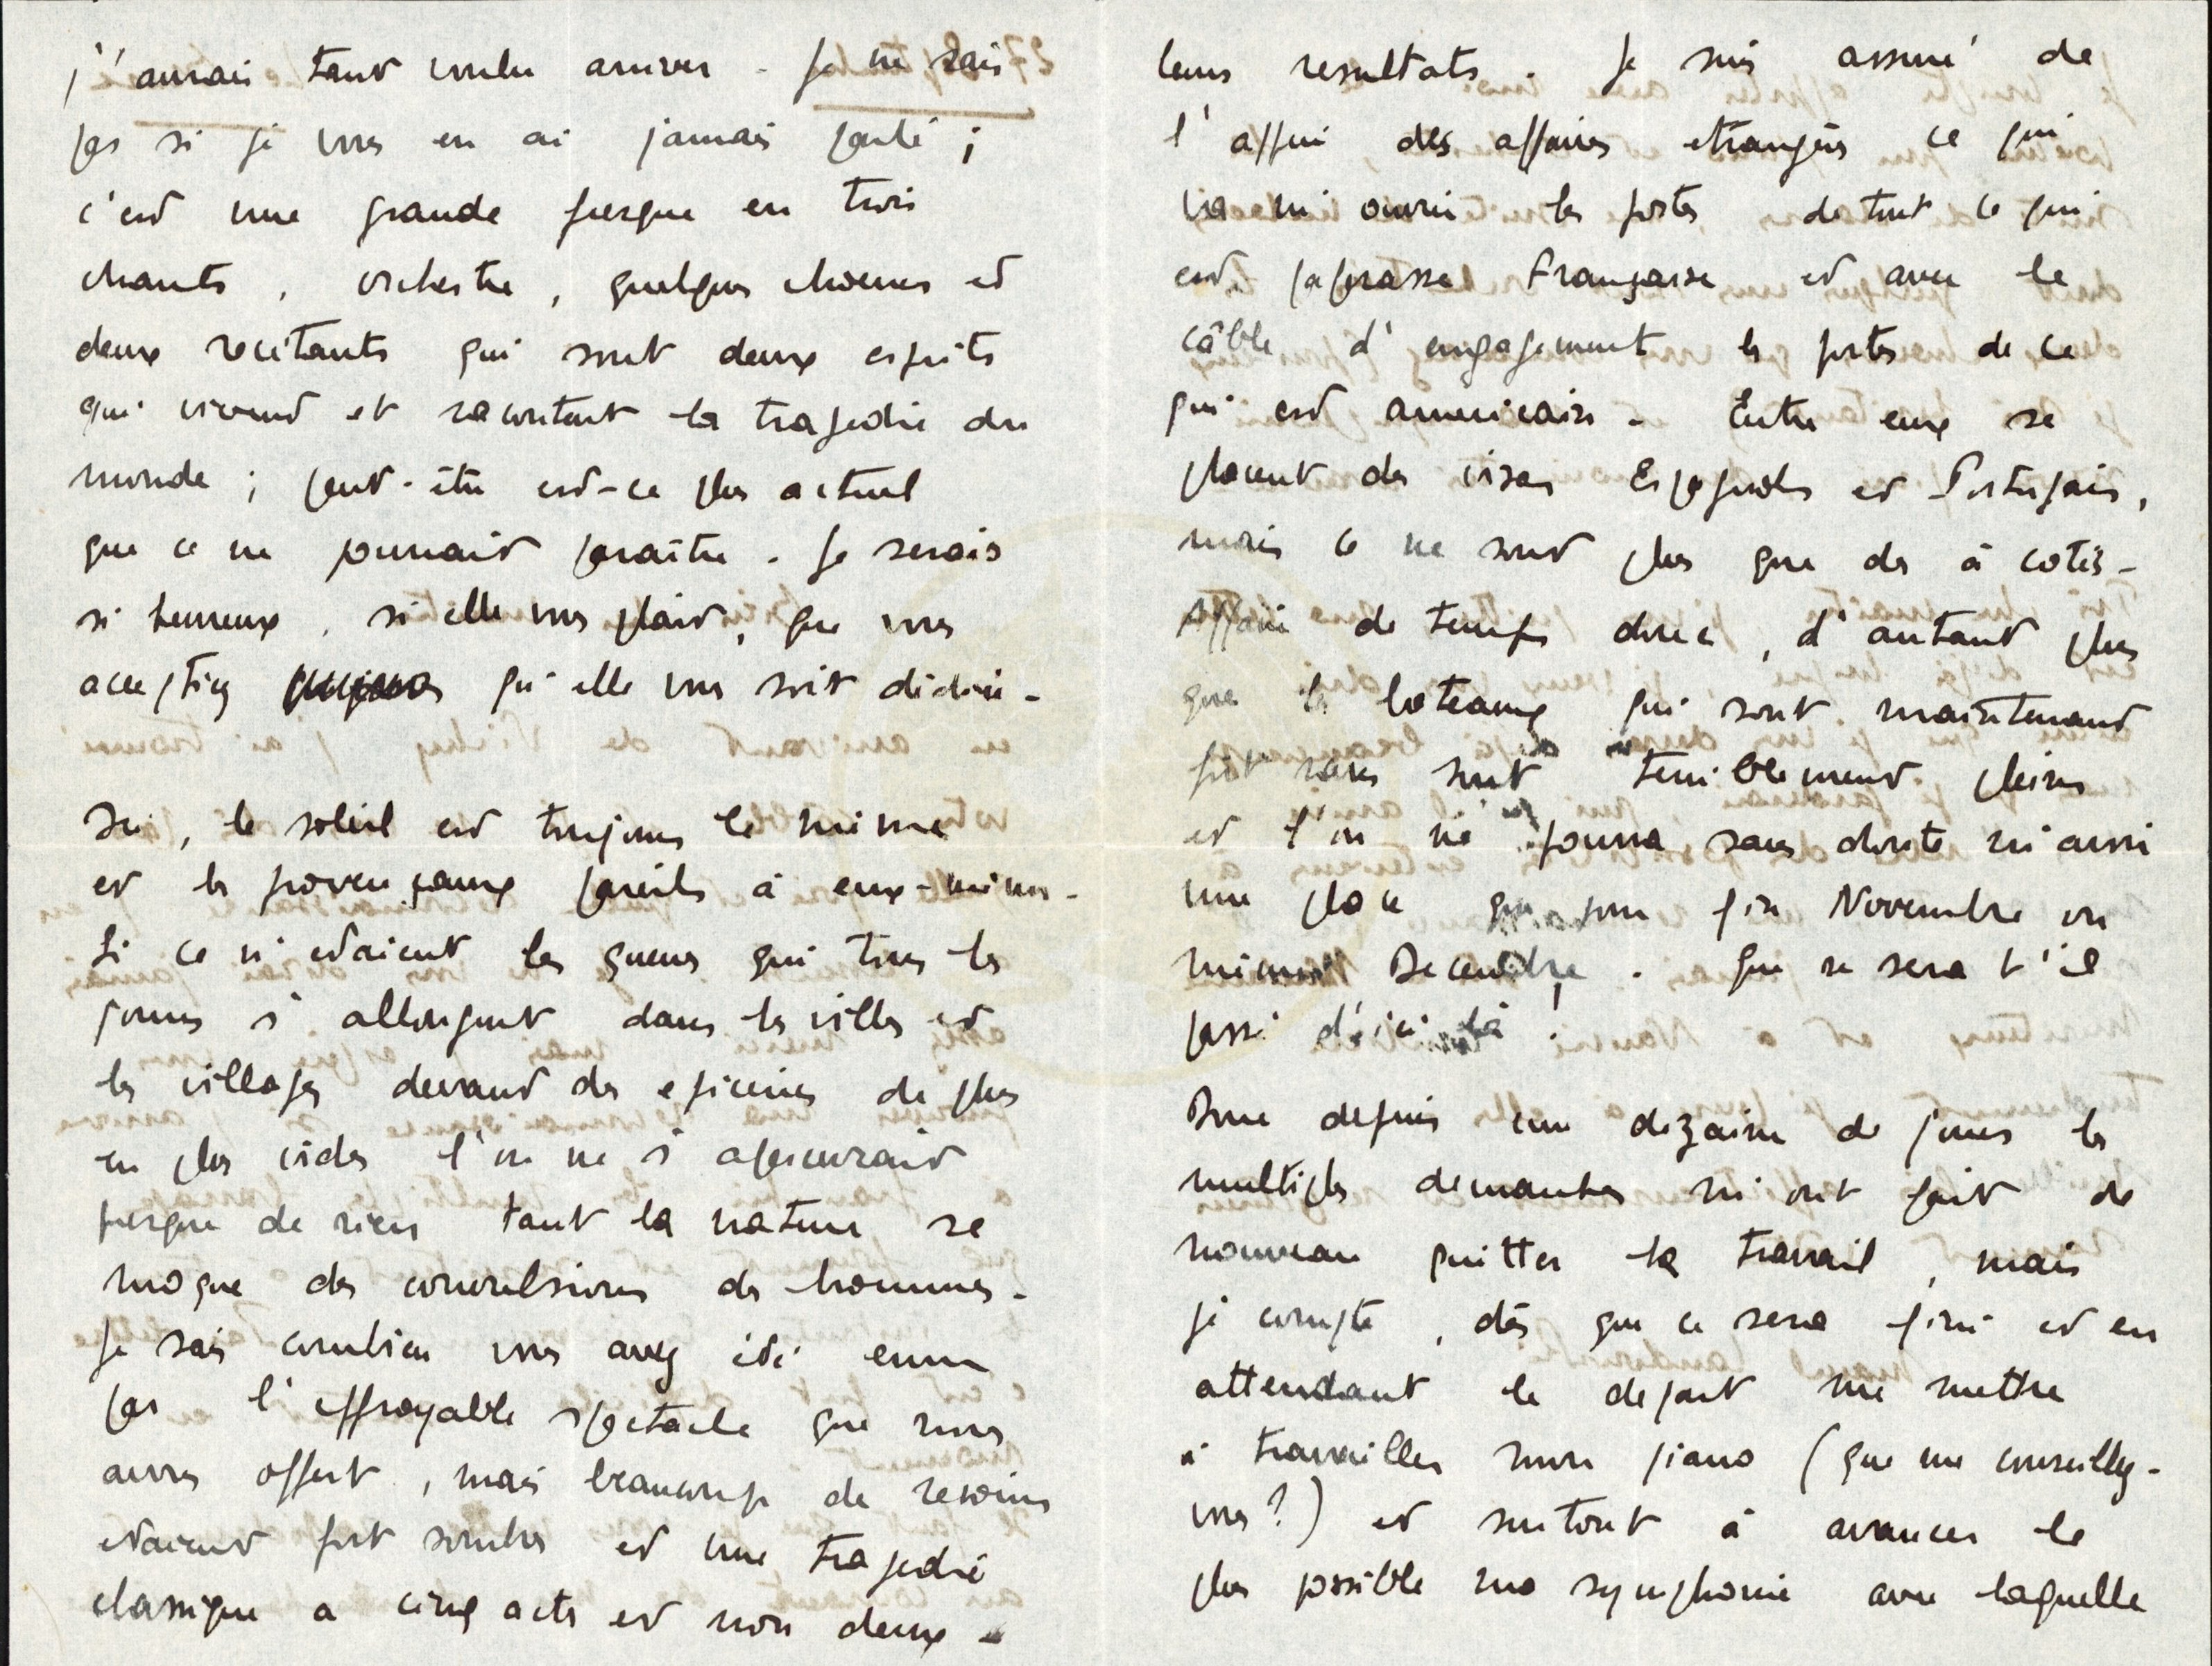 j'aurais tant voulu arriver. Je ne sais
pas si je vous en ai jamais parlé ;
c'est une grande fresque en trois
chants, orchestre, quelques choeurs et
deux recitants qui sont deux esprits
qui vivent et racontent la tragedie du
monde ; peut-être est-ce plus actuel
que ce ne pourrait paraître. Je serais
si heureux, si elle vous plait, que vous
acceptiez qu'elle vous soit dédiée -
Ici, le soleil est toujours le même
et les provençaux pareils à eux-mêmes -
Si ce n'etaient les queues qui tous les
jours s'allongent dans les villes et
les villages devant des epiceries de plus
en plus vides l'on ne s'apercevrait
presque de rien tant la nature se
moque des convulsions des hommes -
Je sais combien vous avez été emu
par l'effroyable spectacle que nous
avons offert, mais beaucoup de
etaient fort sombres et une tragedie
classique a cinq actes et non deux -
leurs resultats. Je suis assuré de
l'appui des affaires etrangères ce qui
va m'ouvrir les portes de tout ce qui
est paperasse Française et avec le
câble d'engagement les portes de ce
qui est americain - Entre eux se
placent des visas Espagnols et Portugais,
mais ce ne sont plus que des à cotés -
Affaire de temps donc, d'autant plus
que les bateaux qui sont maintenant
fort rares sont terriblement pleins
et l'on ne pourra sans doute m'avoir
une place que pour fin Novembre ou
même Decembre. Que se sera t'il
passé d'ici là !
Donc depuis une dizaine de jours les
multiples demarches m'ont fait de
nouveau quitter le travail, mais
je compte, dès que ce sera fini et en
attendant le depart me mettre
à travailler mon piano (que me conseillez-
vous ?) et surtout à avancer le
plus possible ma symphonie avec laquelle